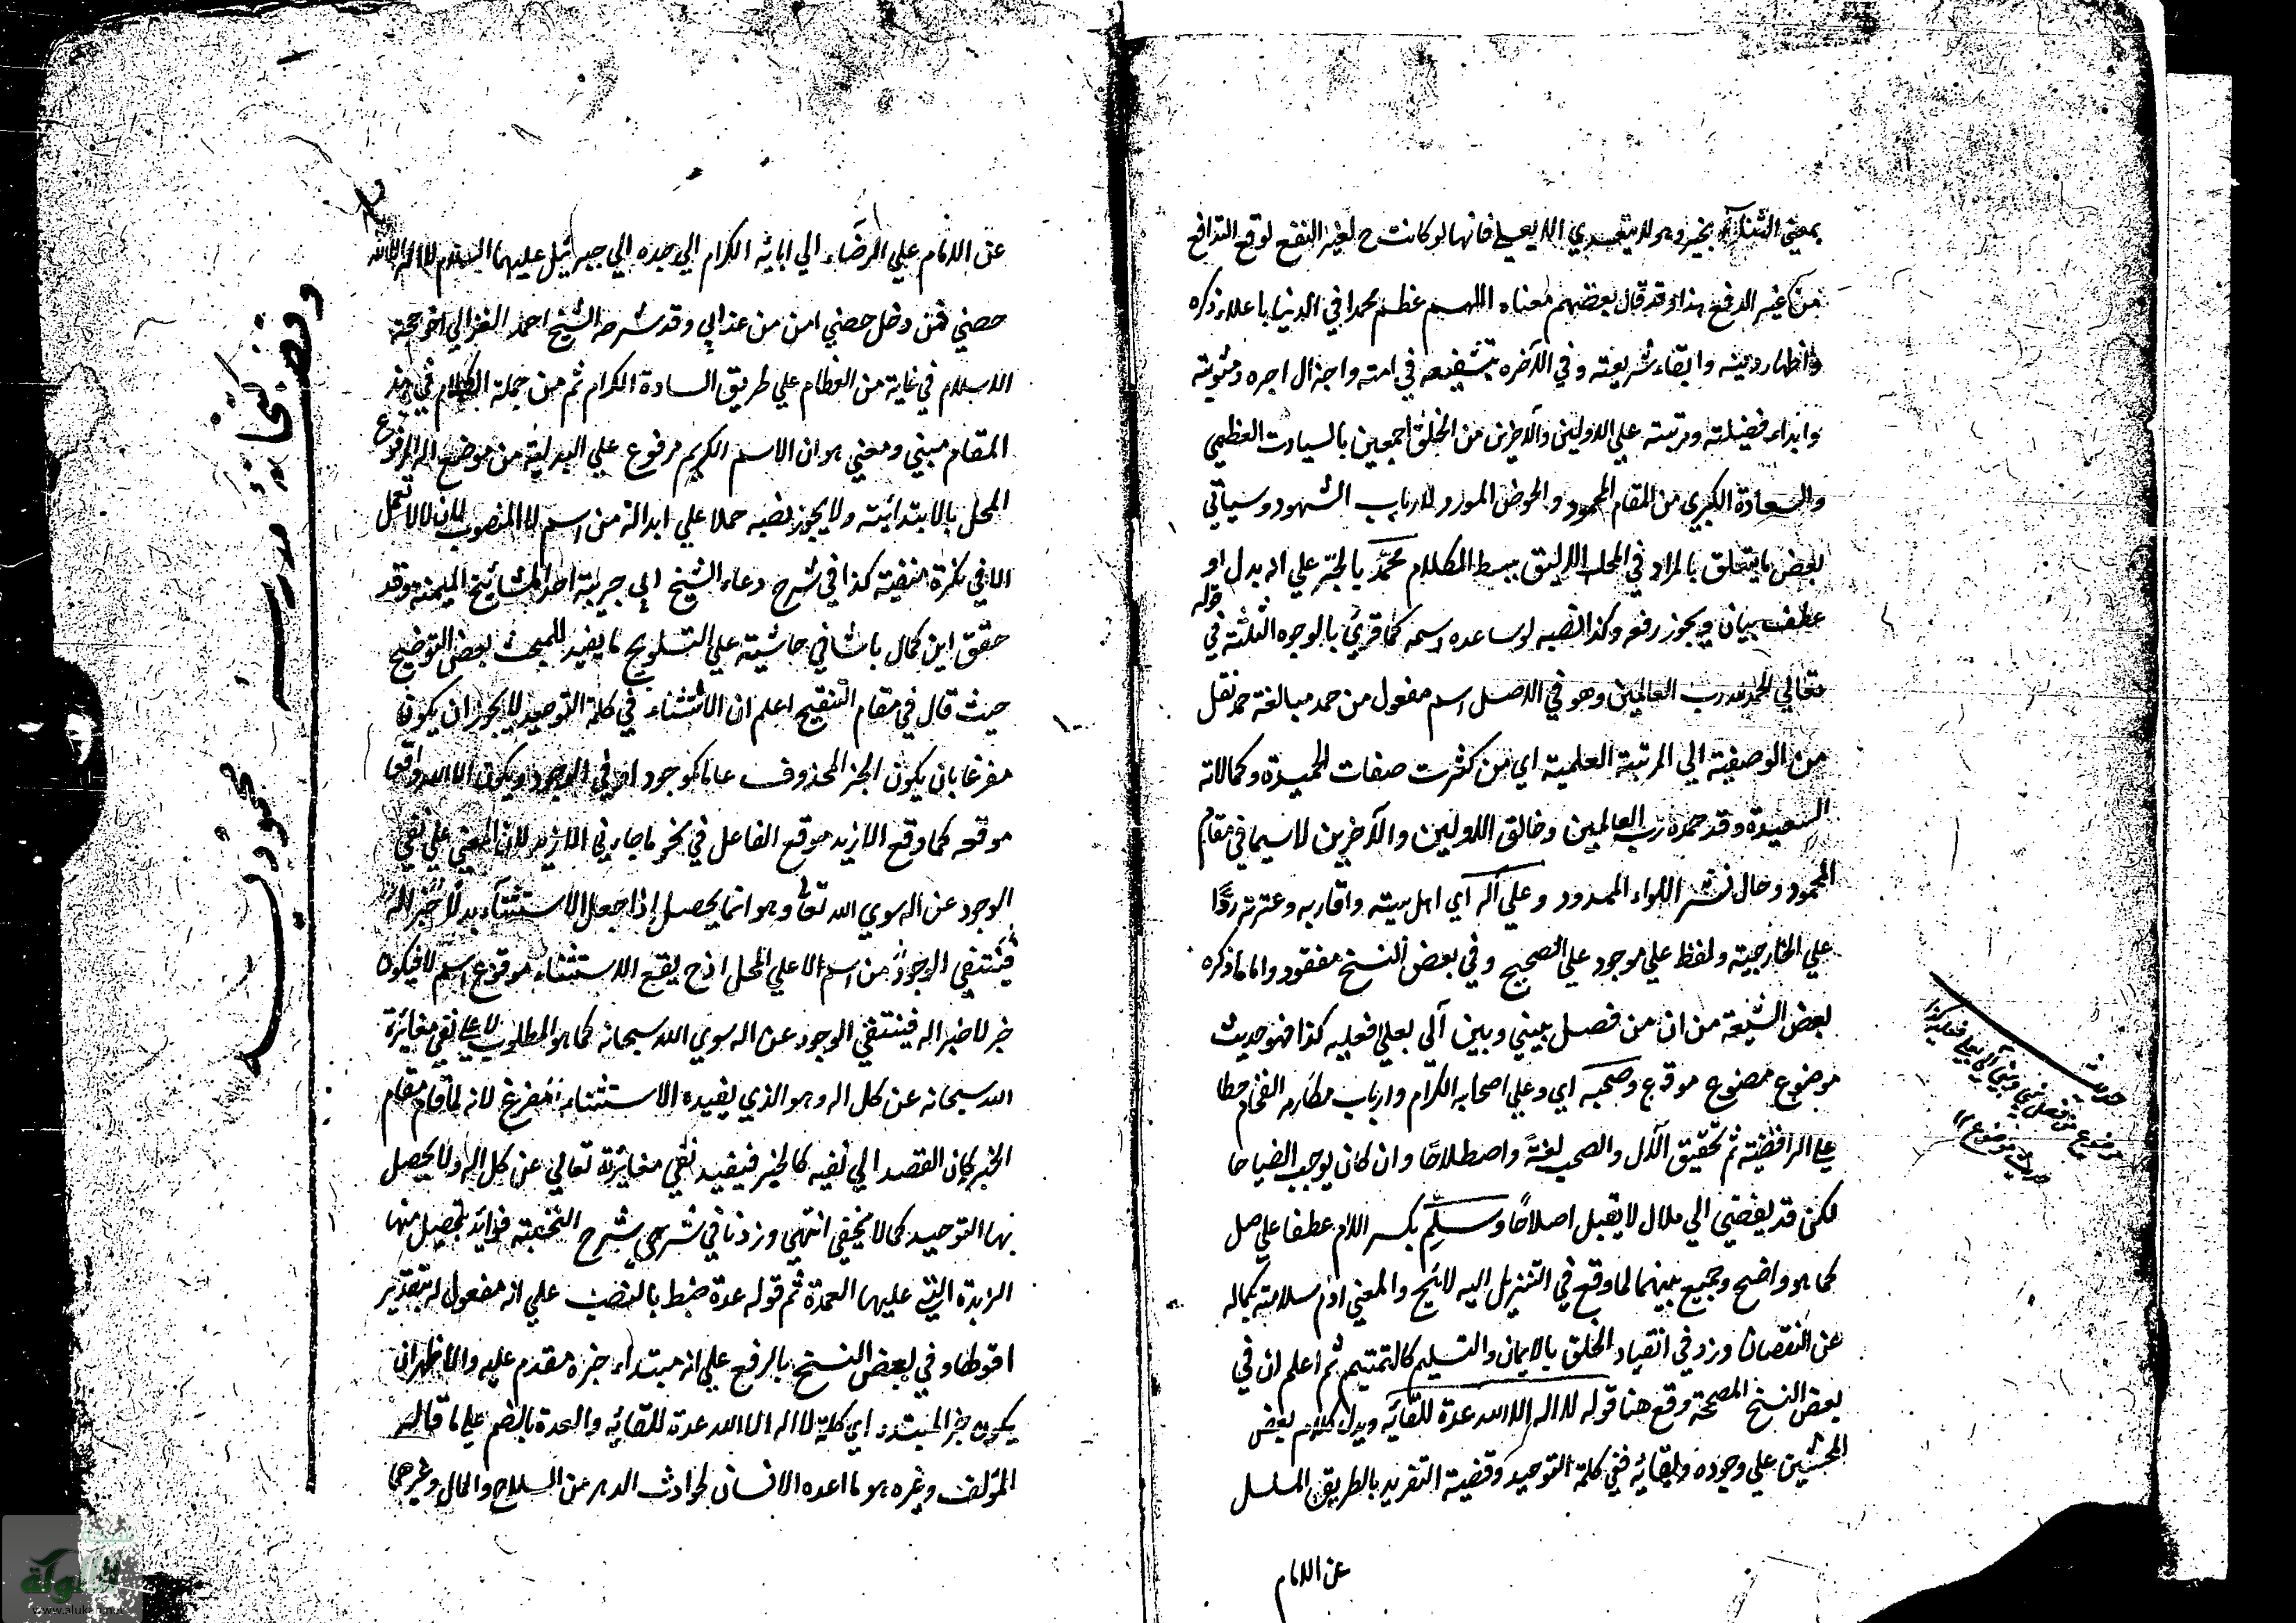 بمعني الثنا بخير وهو لا يتعدي الا بعلي فانها لو كانت ح لغير النفع لوقع التدافع
من غير الدفع هذا وقد قال بعضهم معناه اللهم عظم محمدا في الدنيا باعلاء ذكره
واظهار دينه وابقاء شريعته وفي الآخرة بتشفيعه في امته واجزال اجره ومثوبته
وابداء فضيلته ومرتبته علي الاولين والآخرين من الخلق اجمعين بالسيادت العظمي
والسعادة الكبري من المقام المحمود والحوض المورود لارباب الشهود وسياتي
بعض ما يتعلق بالمراد في المحل الاليق ببسط الكلام محمد بالجر علي انه بدل او
عطف بيان ويجوز رفعه وكذا نصبه لو ساعده رسمه كما قرئ بالوجوه الثلثة في قوله
تعالي الحمد لله رب العالمين وهو في الاصل اسم مفعول من حمد مبالغة حمد نقل
من الوصفية الي المرتبة العلمية اي من كثرت صفات الحميدة وكمالاته
السعيدة وقد حمده رب العالمين وخالق الاولين والآخرين لا سيما في مقام
المحمود وحال نشر اللواء الممدود وعلي آله اي اهل بيته واقاربه وعترته ردًّا
علي الخارجية ولفظ علي موجود علي الصحيح وفي بعض النسخ مفقود واما ما ذكره
بعض الشيعة من ان من فصل بيني وبين آلي بعلي فعليه كذا فهو حديث
موضوع مصنوع موقع وصحبه اي وعلي اصحابه الكرام وارباب مكارمه الفخام حطا
علي الرافضية ثم تحقيق الآل والصحب لغةً واصطلاحًا وان كان يوجب ايضاحا
لكن قد يفضي الي ملال لا يقبل اصلاحًا وسلّم بكسر اللام عطفا علي صل
كما هو واضح وجميع بينهما لما وقع في التنزيل اليه لائح والمعني ادم سلامته بكماله
عن النقصان وزد في انقياد الخلق بالايمان والتسليم كالتتميم ثم اعلم ان في
بعض النسخ المصححة وقع هنا قوله لا اله الا الله عدة للقائه ويدل كلام بعض
المحشين علي وجوده وبقائه ففي كلمة التوحيد وقضية التفريد بالطريق المسلسل
عن الامام
حديث
موضوع من فصل بيني وبين آلي بعلي فعليه كذا
حديث موضوع
عن الامام علي الرضاء الي ابائه الكرام الي جده الي جبرئيل عليهما السلام لا اله الا الله
حصني فمن دخل حصني امن من عذابي وقد شرحه الشيخ احمد الغزالي اخو حجة
الاسلام في غاية من العظام علي طريق السادة الكرام ثم من جملة الكلام في هذا
المقام مبني ومعني هو ان الاسم الكريم مرفوع علي البدلية من موضع اله المرفوع
المحل بالابتدائية ولا يجوز نصبه حملا علي ابداله من اسم لا المنصوب لان لا لا تعمل
الا في نكرة منفية كذا في شرح دعاء الشيخ ابي حربة احد المشائخ اليمنة وقد
حقق ابن كمال باشا في حاشيته علي التلويح ما يفيد للمبحث بعض التوضيح
حيث قال في مقام التنقيح اعلم ان الاستثناء في كلمة التوحيد لا يجوز ان يكون
مفرغا بان يكون الخبر المحذوف عاما كموجود او في الوجود ويكون الا الله واقعا
موقعه كما وقع الا زيد موقع الفاعل في نحو ما جاءني الا زيد لان المعني علي نفي
الوجود عن اله سوي الله تعالي وهو انما يحصل إذا جعل الاستثناء بدلا
فينتفي الوجود من اسم لا علي المحل اذ ح يقع الاستثناء موقع اسم لا فيكون
خبر لا خبرا له فينتفي الوجود عن اله سوي الله سبحانه كما هو المطلوب لا علي نفي مغائرة
الله سبحانه عن كل اله وهو الذي يفيده الاستثناء المفرغ لانه لما قام مقام
الخبر كان القصد الي نفيه كالخبر فيفيد نفي مغائرته تعالي عن كل اله ولا يحصل
بها التوحيد كما لا يخفي انتهي وزدنا في شرحي شرح النخبة فوائد تحصيل منها
الزبدة التي عليها العمدة ثم قوله عدة ضبط بالنصب علي انه مفعول له بتقدير
اقوطا وفي بعض النسخ بالرفع علي انه مبتداء خبره مقدم عليه والاظهر ان
يكون خبر المبتدء اي كلمة لا اله الا الله عدة للقائه والعدة بالضم علي ما قاله
المؤلف وغيره هو ما اعده الانسان لحوادث الدهر من السلاح والمال وغيرهما